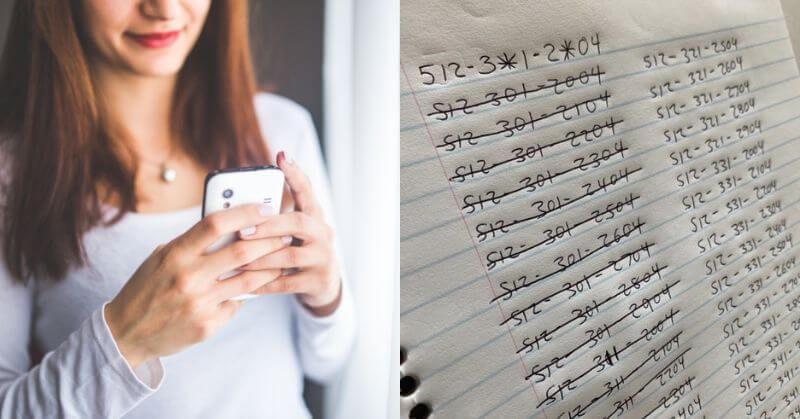 512-3*1-2*04
512-301-2004
512-301-2104
512-301-2204
512-301-2304
512-301-2404
512-301-2504
512-301-2604
512-301-2704
512-301-2804
512-301-2904
512-311-2004
512-311-2104
2204
2304
512-321-2504
512-321-2604
512-321-2704
512-321-2804
512-321-2904
512-331-2004
512-331-2104
512-331-2204
512-331-2304
512-331-2404
512-331-2504
512-331-260
512-331-270
512-331-28
512-331-2
512-341-